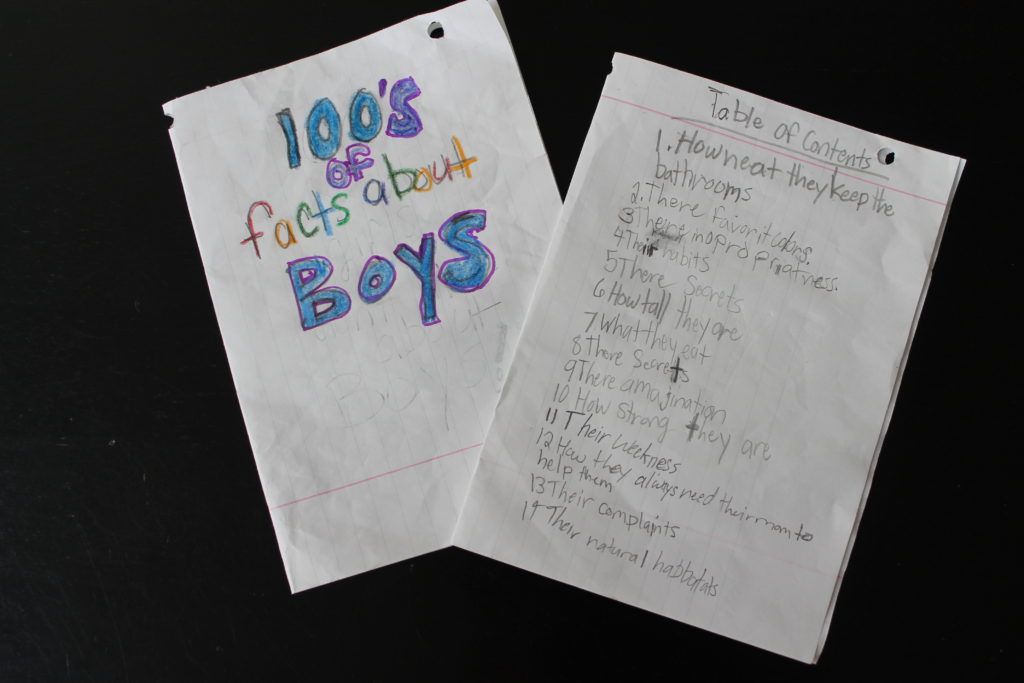 100's
OF
facts about
BOYS
Table of Contents
1. How neat they keep the
bathrooms
2. There favorit colors.
3 Their inopropriatness.
4 Their habits
5 There Secrets
6 How tall they are
7 What they eat
8 There Secrets
9 There amagination
10 How strong they are
11 Their weekness
12 How they always need their mom to
help them
13 Their complaints
14 Their natural habbatats